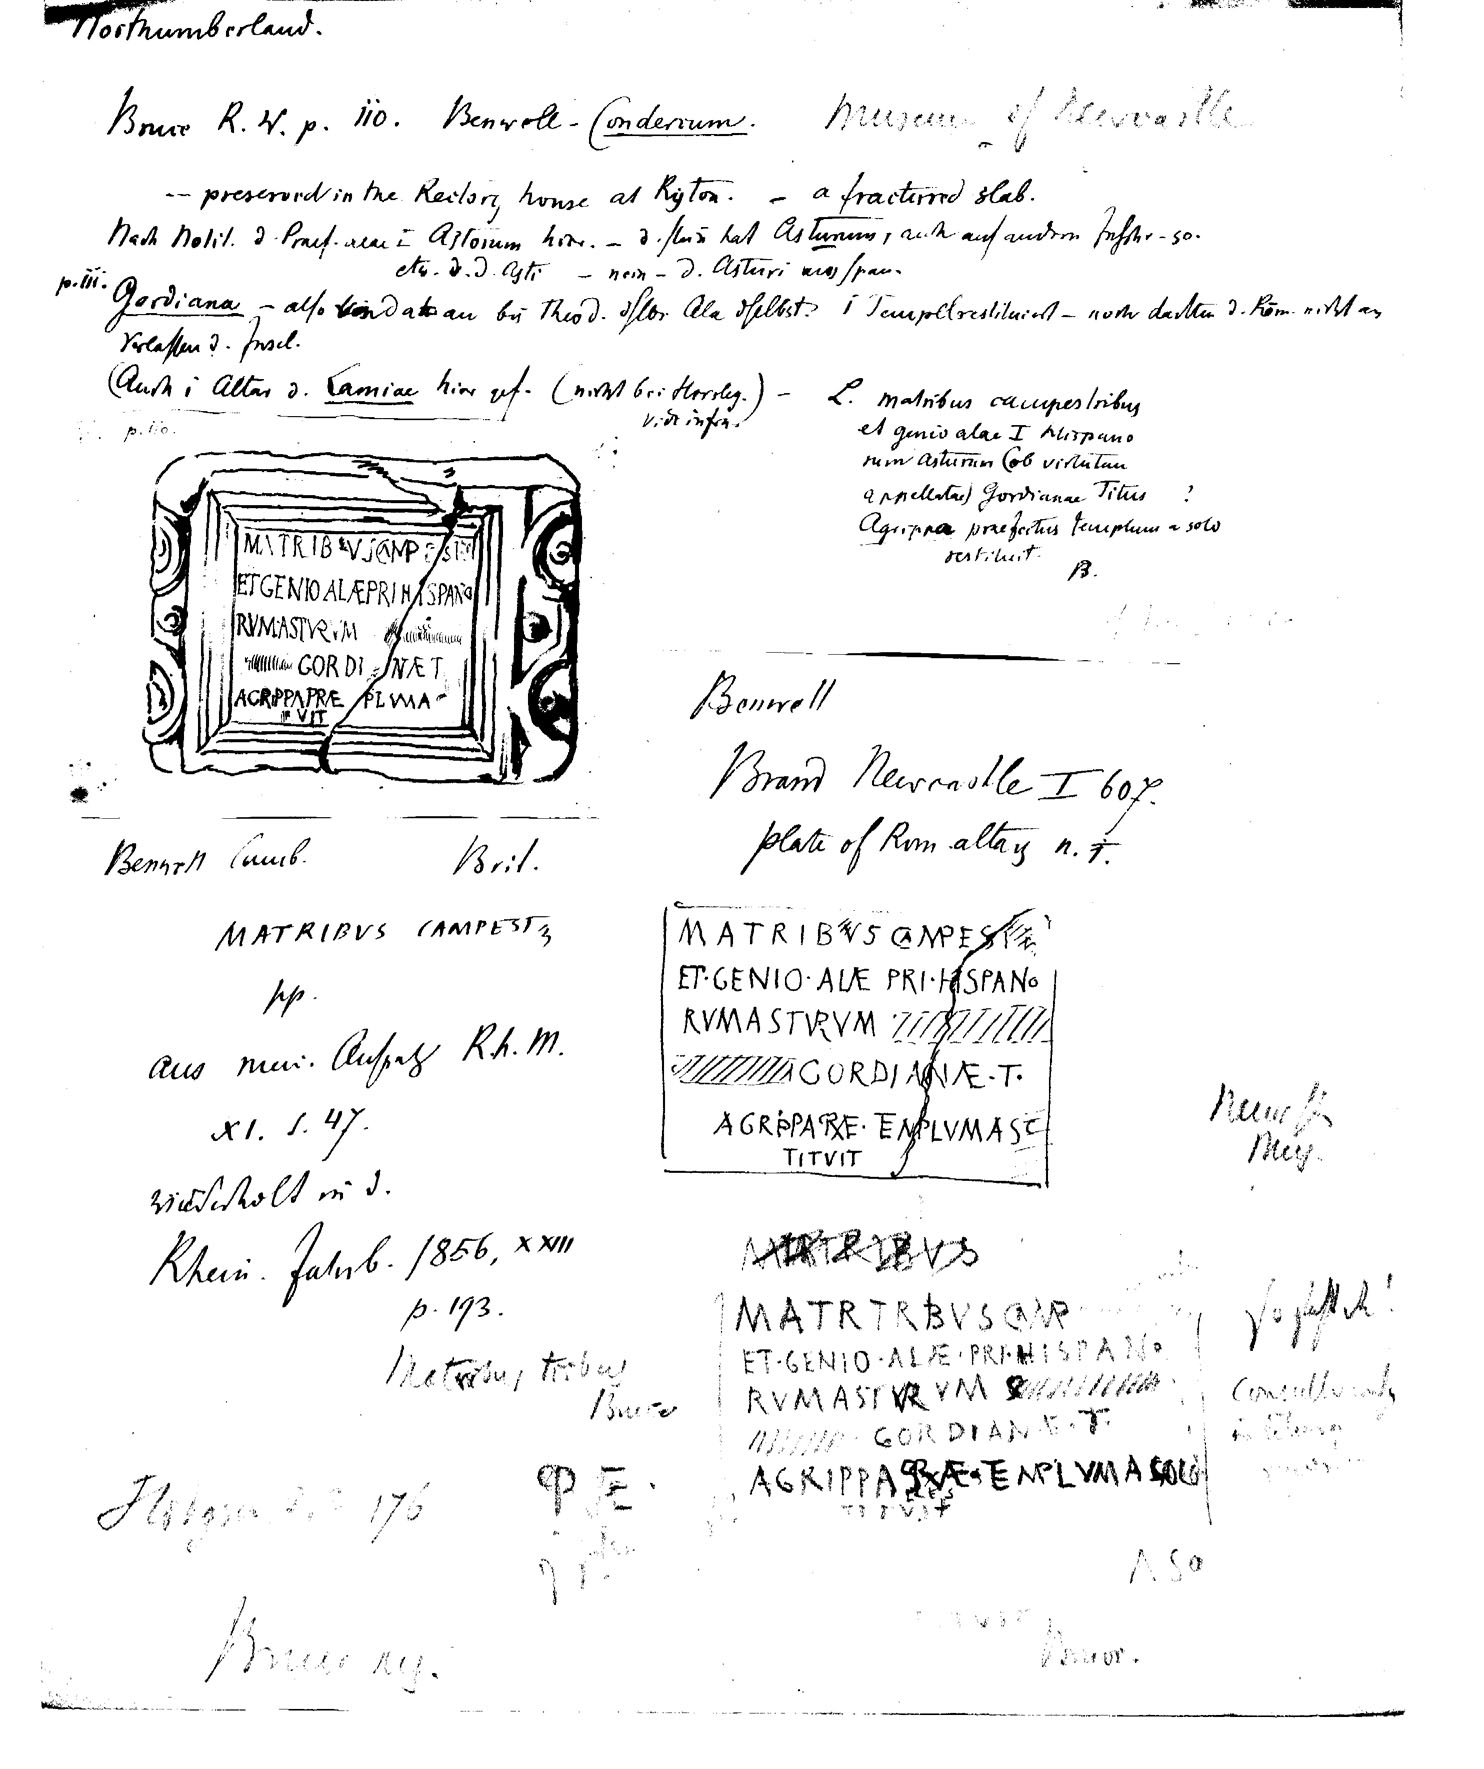 Northumberland.
Bruce R. W. p. 110. Benwell - Condercum. Museum of Newcastle
-- preserved in the Rectory house at Ryton. - a fractured slab.
Nach Notit. d. Praef. alae I Astorum hier. - d. Stein hat Asturum, auch auf andern Inschr. so.
etw. d. d. Asti - nein - d. Asturi aus Span.
p. 111. Gordiana - also von da an bis Theod. dslbe Ala dselbst? 1 Tempel restituiert - noch dachten d. Röm. nicht an
Verlassen d. Insel.
(Auch 1 Altar d. Lamiae hier gef. (nicht bei Horsley.) -
vide infra.
L. matribus campestribus
et genio alae I Hispano
rum Asturum (ob virtutem
appellatae) Gordianae Titus ?
Agrippa praefectus templum a solo
restituit.
B.
p. 110.
MATRIBVS CAMPEST
ET GENIO ALÆ PRI HISPANO
RVM ASTVRVM
GORDIANÆ T
AGRIPPA PRÆ PLVMA
VIT
Benwell
Brand Newcastle I 607.
plate of Rom altars n.
Benwell Cumb. Brit.
MATRIBVS CAMPEST
pp.
aus mei. Aufsatz Rh. M.
XI. S. 47.
wiederholt in d.
Rhein. Jahrb. 1856, XXIII
p. 193.
Matribus tribus
Bruce
MATRIBVS CAMPEST
ET·GENIO·ALÆ PRI·HISPANO
RVMASTVRVM
GORDIANÆ·T·
AGRIPPA PRÆ· TEMPLVMAS
TITVIT
MATRIBVS
MATRIBVS CAMP
ET·GENIO·ALÆ·PRI·HISPANO
RVMASTVRVM
GORDIANÆ·T·
AGRIPPA PRÆ·TEMPLVMASOLO
TITVIT
Hodgson 176
PÆ.
ASO
Bruce
Bruce.